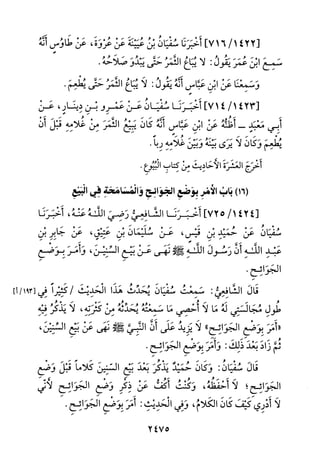 [٧١٦/١٤٢٢] أَخْبَرَنَا سُفْيَانُ بْنُ عُيَيْنَةَ عَنْ عُرْوَةَ، عَنْ طَاوُسٍ أَنَّهُ
سَمِعَ ابْنَ عُمَرَ يَقُولُ: لَا يُبَاعُ الثَّمَرُ حَتَّى يَبْدُوَ صَلَاحُهُ.
وَسَمِعْنَا عَنْ ابْنِ عَبَّاسٍ أَنَّهُ يَقُولُ: لَا يُبَاعُ الثَّمَرُ حَتَّى يُطْعِمَ.
[٧١٤/١٤٢٣] أَخْبَرَنَا سُفْيَانُ عَنْ عَمْرِو بْنِ دِينَارٍ، عَنْ
أَبِي مَعْبَدٍ ـ أَظُنُّهُ عَنْ ابْنِ عَبَّاسٍ أَنَّهُ كَانَ يَبِيعُ الثَّمَرَ مِنْ غُلَامِهِ قَبْلَ أَنْ
يُطْعِمَ وَكَانَ لَا يَرَى بَيْنَهُ وَبَيْنَ غُلَامِهِ رِباً.
أَخْرَجَ العَشَرَةَ الأَحَادِيثَ مِنْ كِتَابِ البُيُوعِ.
(١٦) بَابُ الأَمْرِ بِوَضْعِ الجَوَائِحِ وَالمُسَامَحَةِ فِي البَيْعِ
[٧٢٥/١٤٢٤] أَخْبَرَنَا الشَّافِعِيُّ رَضِيَ اللَّهُ عَنْهُ، أَخْبَرَنَا
سُفْيَانُ عَنْ حُمَيْدِ بْنِ قَيْسٍ، عَنْ سُلَيْمَانَ بْنِ عَتِيقٍ، عَنْ جَابِرِ بْنِ
عَبْدِ اللَّهِ أَنَّ رَسُولَ اللَّهِ ﷺ نَهَى عَنْ بَيْعِ السِّنِينَ، وَأَمَرَ بِوَضْعِ
الجَوَائِحِ.
قَالَ الشَّافِعِيُّ: سَمِعْتُ سُفْيَانَ يُحَدِّثُ هَذَا الْحَدِيثَ / كَثِيراً فِي [١٩٣/أ]
طُولِ مُجَالَسَتِي لَهُ مَا لَا أُحْصِي مَا سَمِعْتُهُ يُحَدِّثُهُ مِنْ كَثْرَتِهِ، لَا يَذْكُرُ فِيهِ
«أَمَرَ بِوَضْعِ الجَوَائِحِ» لَا يَزِيدُ عَلَى أَنَّ النَّبِيَّ ﷺ نَهَى عَنْ بَيْعِ السِّنِينَ،
ثُمَّ زَادَ بَعْدَ ذَلِكَ: وَأَمَرَ بِوَضْعِ الجَوَائِحِ.
قَالَ سُفْيَانُ: وَكَانَ حُمَيْدٌ يَذْكُرُ بَعْدَ بَيْعِ السِّنِينَ كَلَاماً قَبْلَ وَضْعِ
الجَوَائِحِ؛ لَا أَحْفَظُهُ، وَكُنْتُ أَكُفُّ عَنْ ذِكْرِ وَضْعِ الجَوَائِحِ لأَنِّي
لَا أَدْرِي كَيْفَ كَانَ الكَلَامُ، وَفِي الْحَدِيثِ: أَمَرَ بِوَضْعِ الجَوَائِحِ.
٢٤٧٥